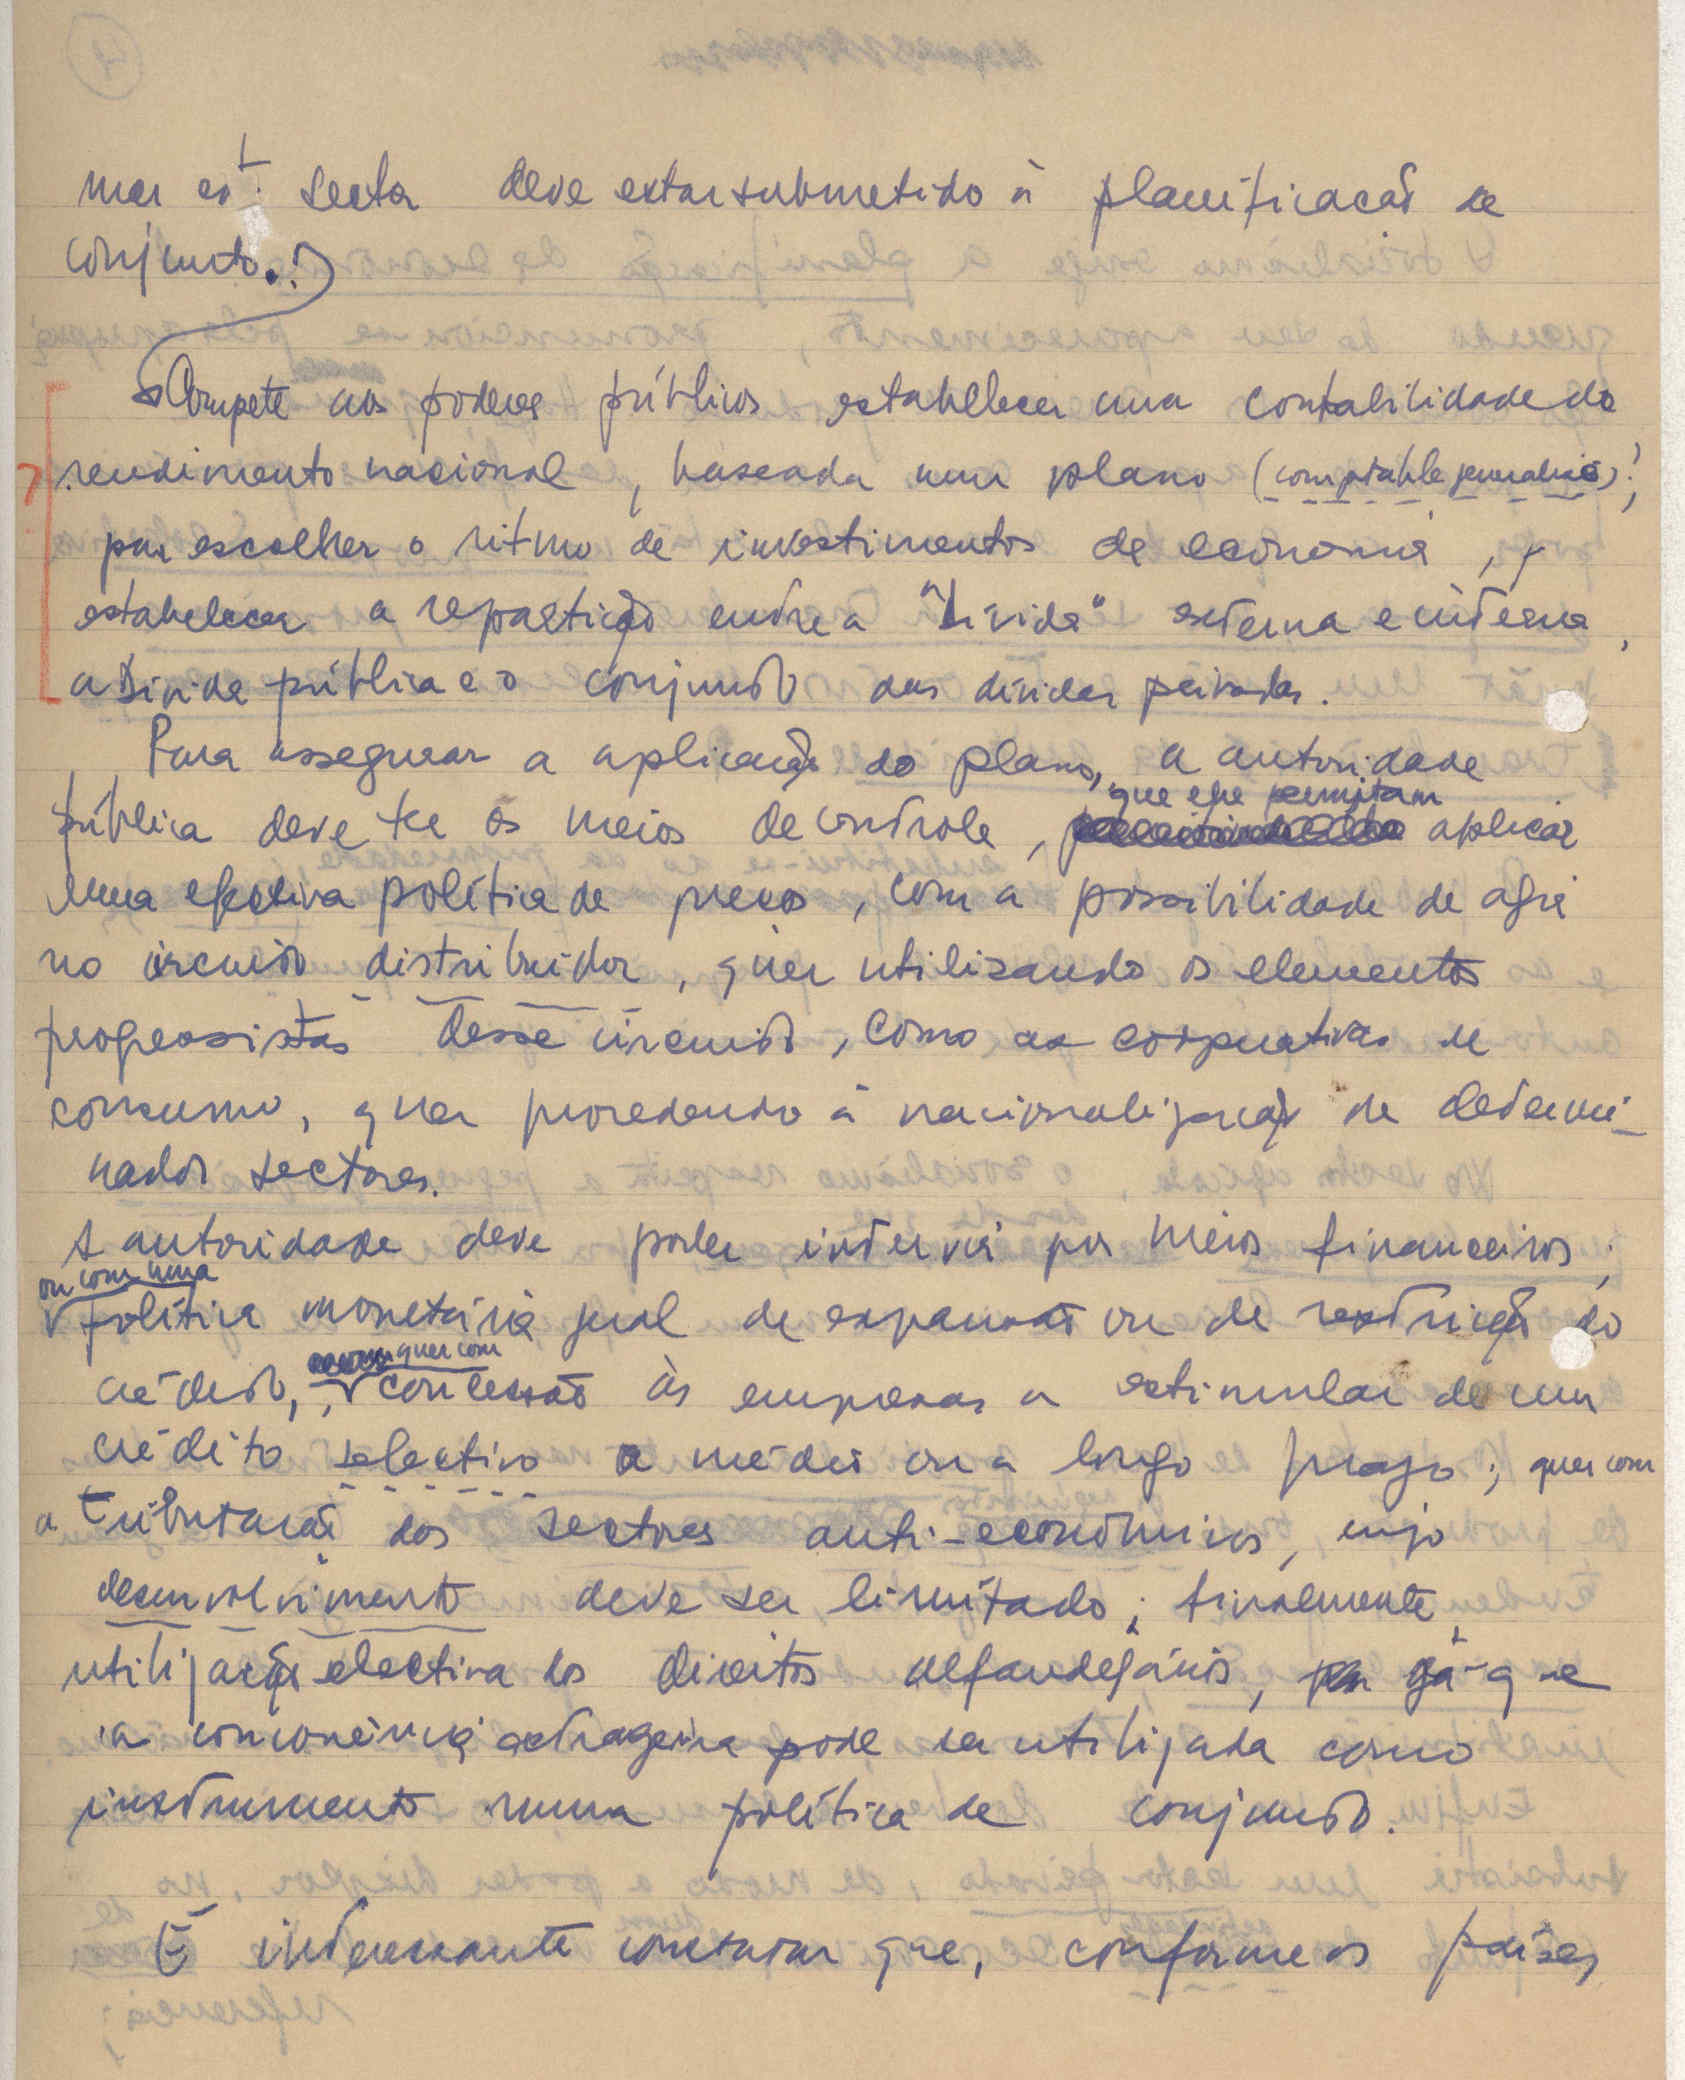 mas este sector deve estar submetido à planificação de
conjunto.
Compete aos poderes públicos estabelecer uma contabilidade do
rendimento nacional, baseada num plano (comptable généralisé);
para escolher o ritmo de investimentos da economia, e
estabelecer a repartição entre a "dívida" externa e interna,
a dívida pública e o conjunto das dívidas privadas.
Para assegurar a aplicação do plano, a autoridade
pública deve ter os meios de controle, que lhe permitam aplicar
uma efectiva política de preços, com a possibilidade de agir
no circuito distribuidor, quer utilisando os elementos
progressistas desse circuito, como as cooperativas de
consumo, quer procedendo à nacionalização de determi-
nados sectores.
A autoridade deve poder intervir por meios financeiros;
ou com uma
política monetária geral de expansão ou de restrição do
crédito, quer com concessão às empresas a estimular de um
crédito selectivo a médio ou a longo prazo; quer com
a tributação dos sectores anti-económicos, cujo
desenvolvimento deve ser limitado; finalmente
utilização electiva dos direitos alfandegários, já que
a concorrência estrageira pode ser utilizada como
instrumento numa política de conjunto.
É interessante constatar que, conforme os países